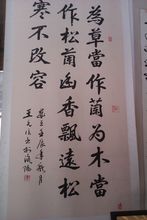 為草當作蘭為木當
作松蘭幽香飄遠松
寒不改容
壬辰年